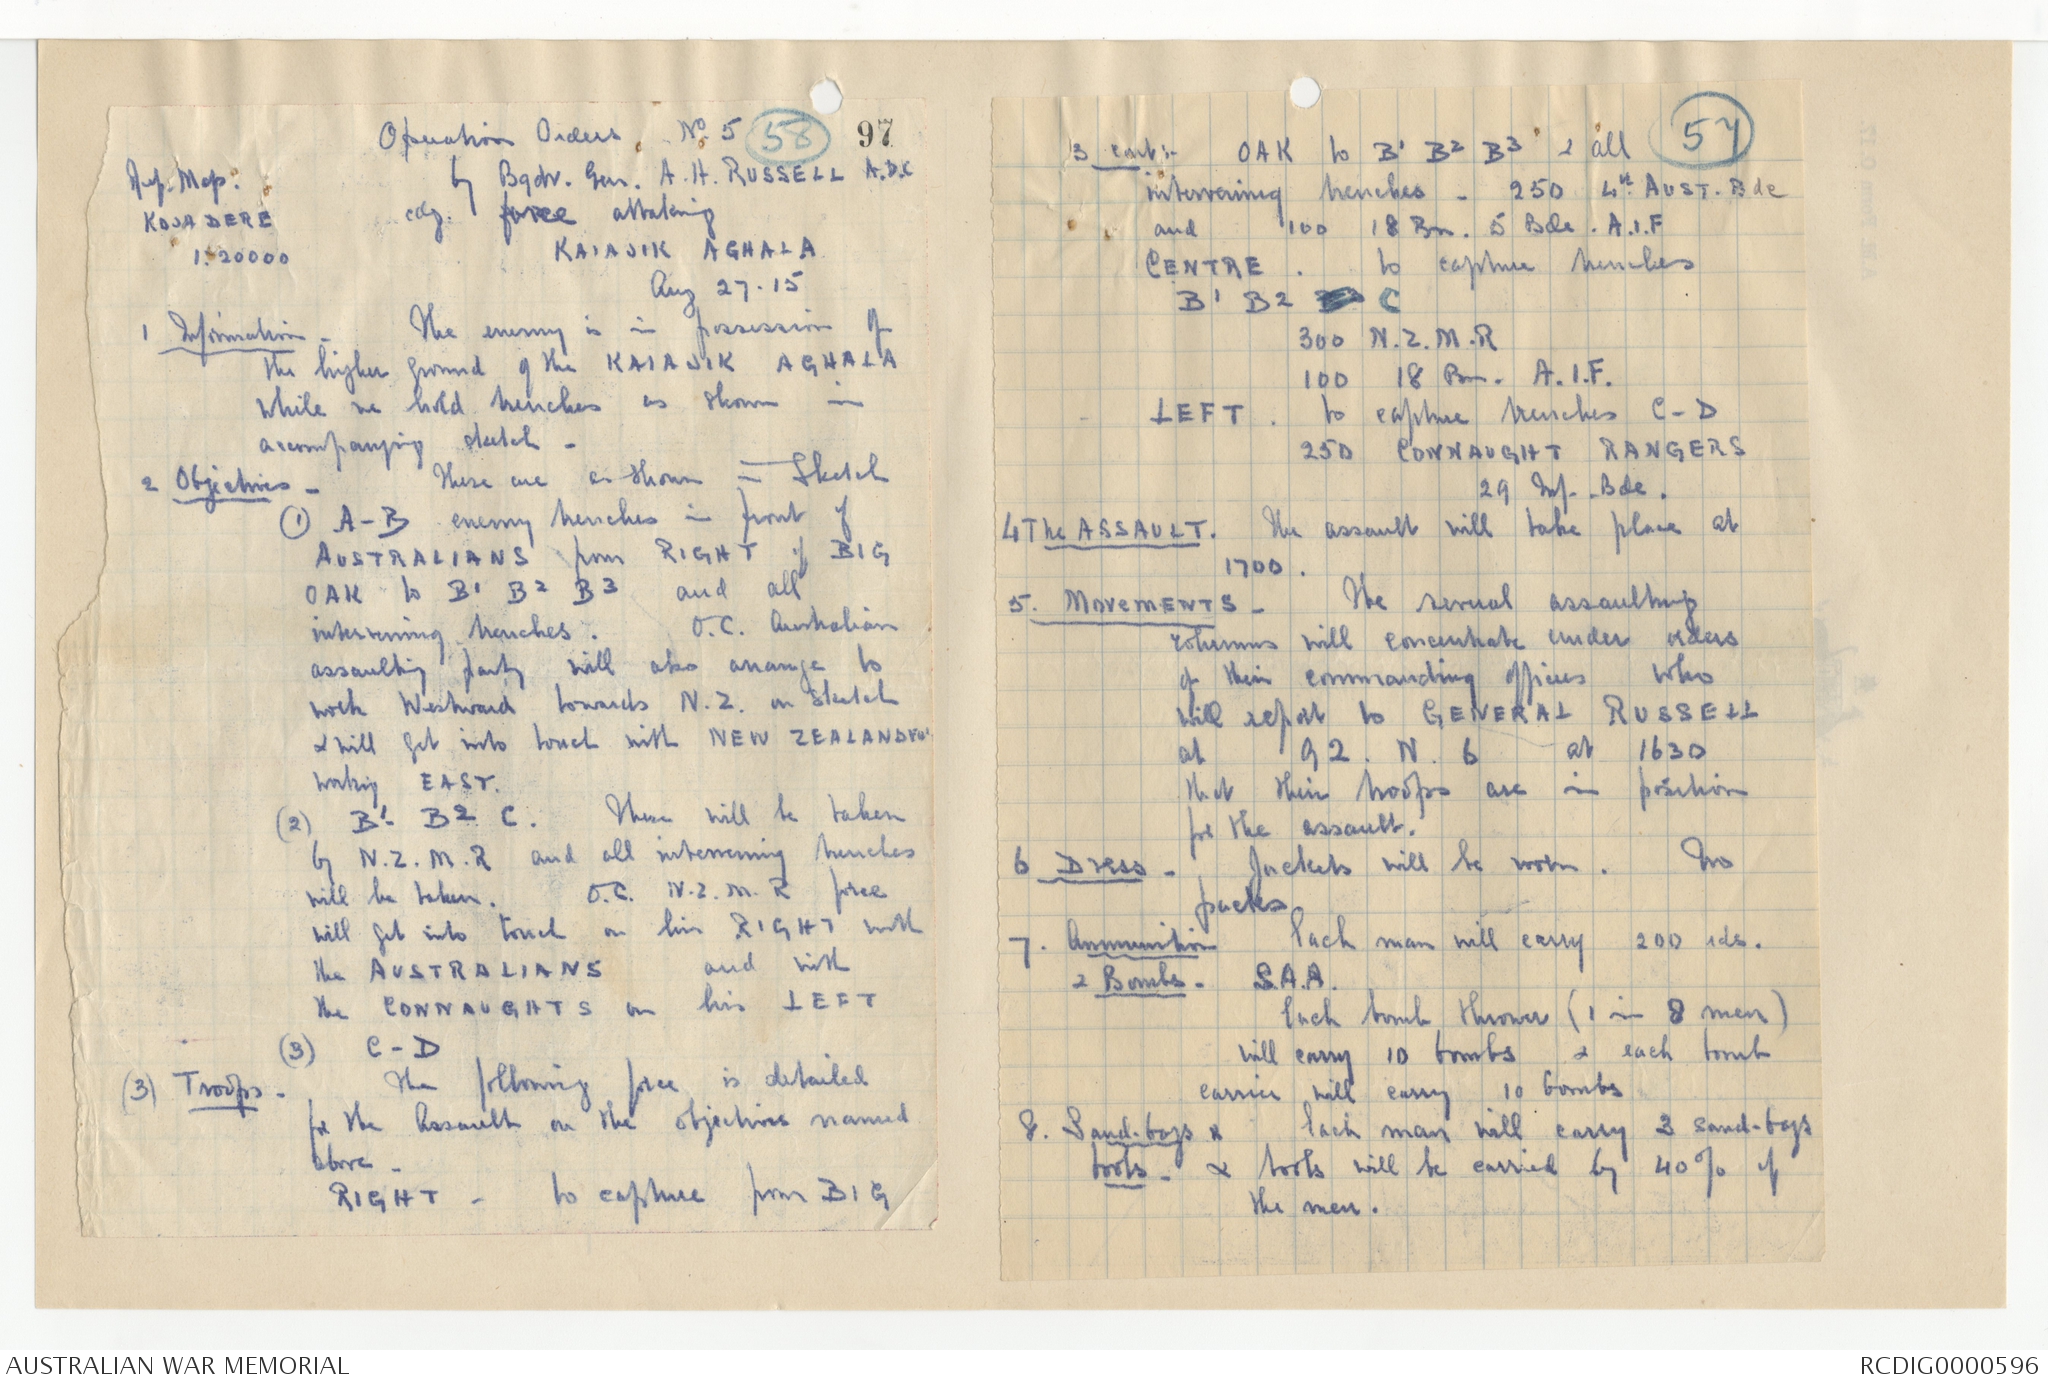 Operation Orders. No 5 58 97
Ref. Map. by Bgdr. Gen. A.H. RUSSELL A.D.C
KOJA DERE cdg. force attaking
1:20000 KAIAJIK AGHALA
Aug 27.15
1 Information - The enemy is in possession of
the higher ground of the KAIAJIK AGHALA
while we hold trenches as shown in
accompanying sketch -
2 Objectives - These are as shown in Sketch
(1) A-B enemy trenches in front of
AUSTRALIANS from RIGHT of BIG
OAK to B1 B2 B3 and all
intervening trenches. O.C. Australian
assaulting party will also arrange to
work Westward towards N.Z. on sketch
& will get into touch with NEW ZEALANDERS
working EAST.
(2) B1- B2 C. These will be taken
by N.Z.M.R and all intervening trenches
will be taken. O.C. N.Z.M.R force
will get into touch on his RIGHT with
the AUSTRALIANS and with
the CONNAUGHTS on his LEFT
(3) C-D
(3) Troops - The following force is detailed
for the Assault on the objectives named
above -
RIGHT - to capture from BIG
57
3 cont:- OAK to B1 B2 B3 & all
intervening trenches - 250 4th AUST. Bde
and 100 18 Bn. 5 Bde. A.I.F
CENTRE. to capture trenches
B1 B2 C
300 N.Z.M.R
100 18 Bn. A.I.F.
LEFT. to capture trenches C-D
250 CONNAUGHT RANGERS
29 Inf. Bde.
4 The ASSAULT. The assault will take place at
1700.
5. MOVEMENTS - The several assaulting
columns will concentrate under orders
of their commanding officers who
will report to GENERAL RUSSELL
at 92. N. 6 at 1630
that their troops are in position
for the assault.
6 Dress - Jackets will be worn. No
packs
7. Ammunition Each man will carry 200 rds.
& Bombs - S.A.A.
Each bomb thrower (1 in 8 men)
will carry 10 bombs & each bomb
carrier will carry 10 bombs
8. Sand-bags & Each man will carry 3 sand-bags
tools - & tools will be carried by 40% of
the men.
AUSTRALIAN WAR MEMORIAL
RCDIG0000596